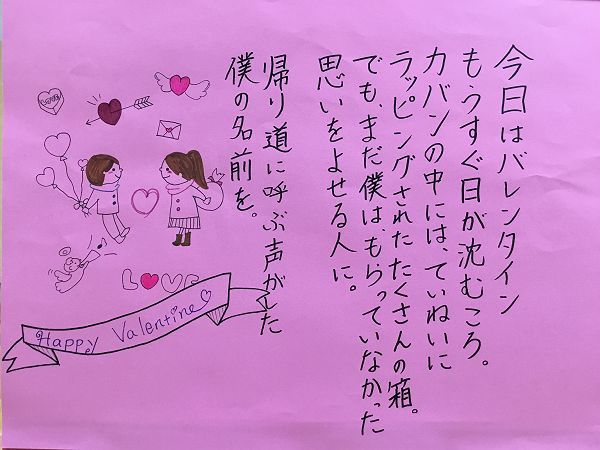 今日はバレンタイン
もうすぐ日が沈むころ。
カバンの中には、ていねいに
ラッピングされたたくさんの箱。
でも、まだ僕は、もらっていなかった
思いをよせる人に。
帰り道に呼ぶ声がした
僕の名前を。
Love
LOVE
Happy Valentine